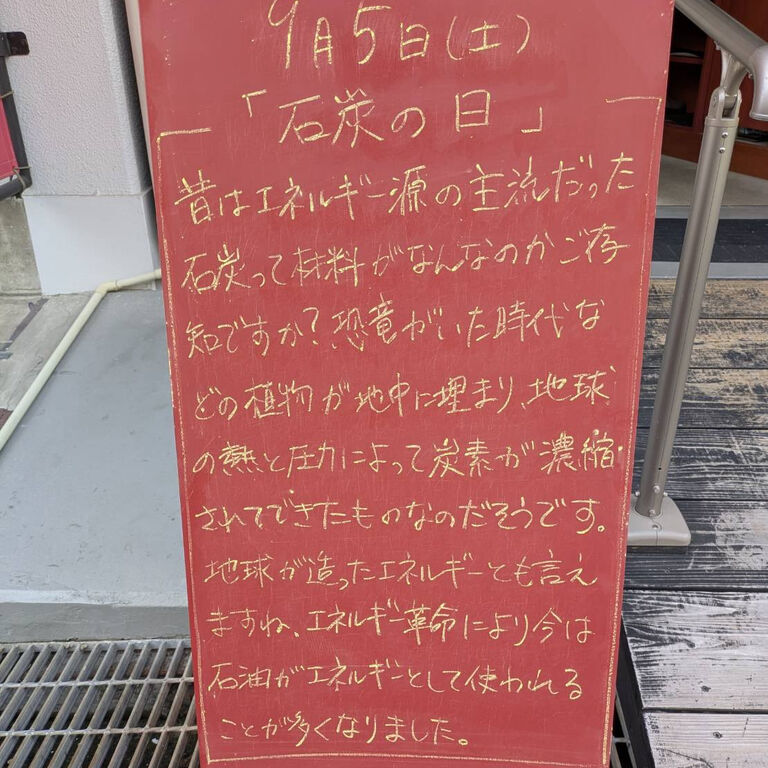 9月5日(土)
「石炭の日」
昔はエネルギー源の主流だった
石炭って材料がなんなのかご存
知ですか?恐竜がいた時代な
どの植物が地中に埋まり、地球
の熱と圧力によって炭素が濃縮
されてできたものなのだそうです。
地球が造ったエネルギーとも言え
ますね、エネルギー革命により今は
石油がエネルギーとして使われる
ことが多くなりました。